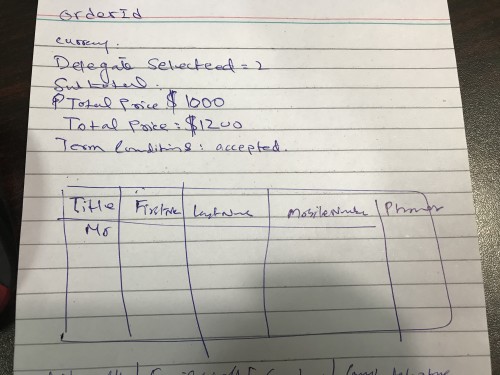 OrderId
currency.
Delegate Selected = 2
Subtotal.
Total Price $ 1000
Total Price : $1200
Term Conditions : accepted.
Title Firstname Lastname Mobile Phone
Mr